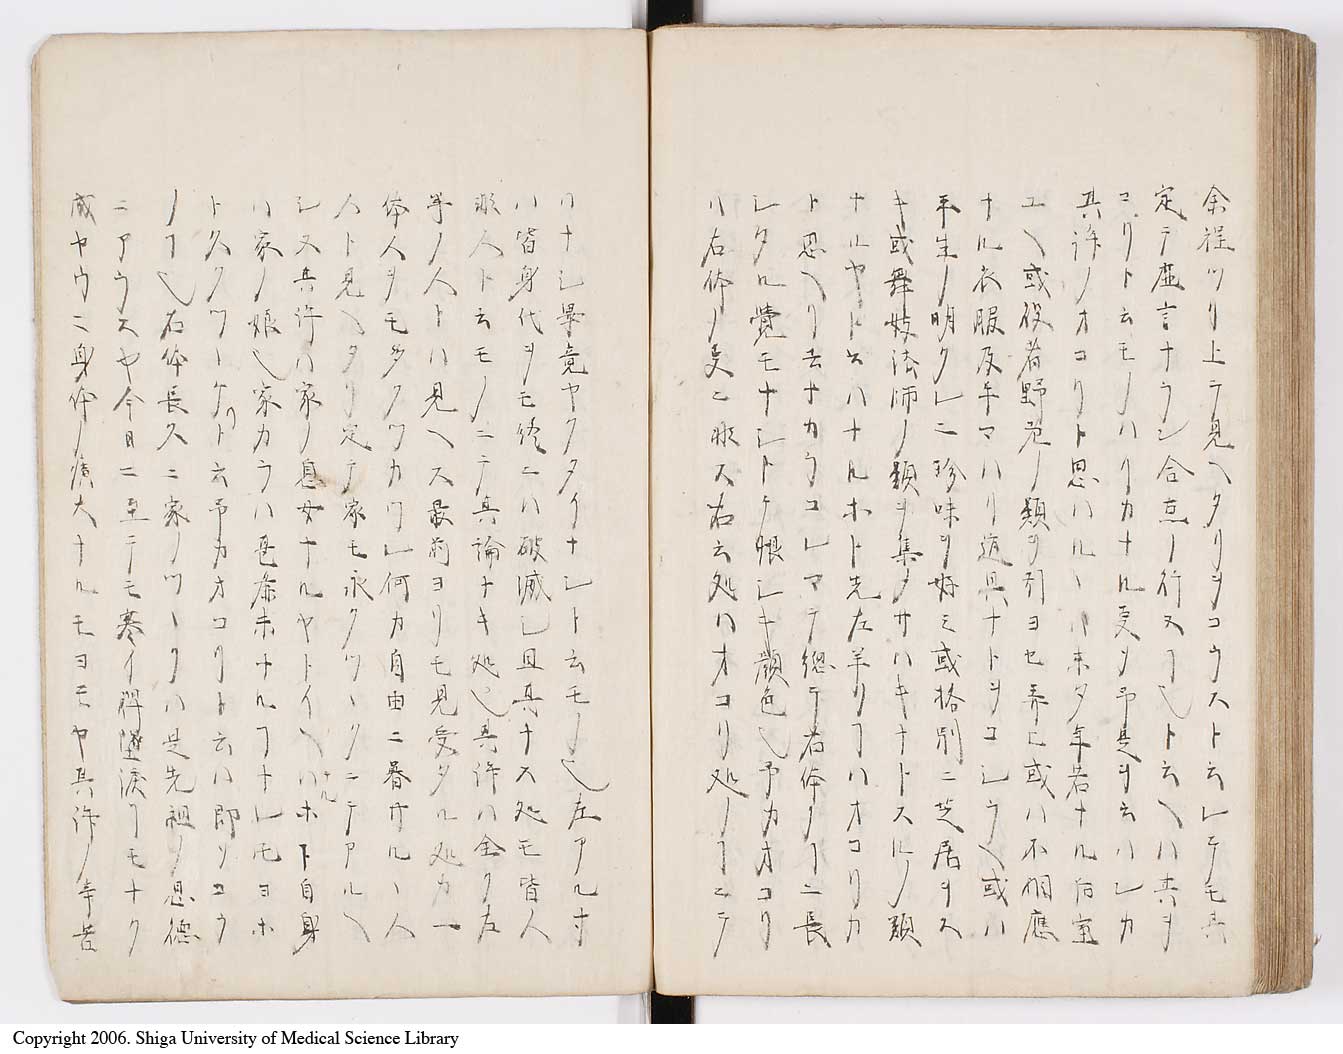 余程ツリ上テ見ヘタリヲコウスト云レテモ其
定テ虚言ナラン合点ノ行ヌヿ也ト云ヘハ其ヲ
コリト云モノハリカナル叓ソ予是ヲ云ハレカ
其許ノオコリト思ハルヽハ未タ年若ナル后室
ユヘ或役者野郎ノ類ヲ引ヨセ弄ヒ或ハ不相應
ナル衣服及手マハリ道具ナトヲコシラヘ或ハ
平生ノ明クレニ珍味ヲ好ミ或格別ニ芝居ヲス
キ或舞妓法師ノ類ヲ集タサハキナトスル類
ナルヤト云ハナルホト先左羊リヿハオコリカ
ト思ヘリ去ナカラコレマテ總テ右体ノヿニ長
シタル覺モナシトケ恨シキ顔色也予カオコリ
ハ右体ノ叓ニ非ス右云処ハオコリ処ノヿニテ
ハナシ畢竟ヤクタイナシト云モノ也左アル寸
ハ皆身代ヲモ終ニハ破滅シ且具ナス処モ皆人
非人ト云モノニテ具論ナキ処也其許ハ全ク左
羊ノ人トハ見ヘス最前ヨリモ見受タル処カ一
体人ヲモ多クツカワレ何カ自由ニ暮サルヽ人
人ト見ヘタリ定テ家モ永クツヽクニテアルヘ
シ又其許ハ家ノ息女ナルヤトイヘハナルホト自身
ハ家ノ娘也家カラハ甚奈末ナルヿナレ𪜈ヨホ
トクツヽケリト云予カオコリト云ハ即ソコウ
ノヿ也右体長久ニ家ノツヽクハ是先祖ノ恩德
ニアウスヤ今日ニ至テモ寒イ時墜涙リモナク
成ヤウニ身体ノ廣大ナルモヨモヤ其許ノ辛苦